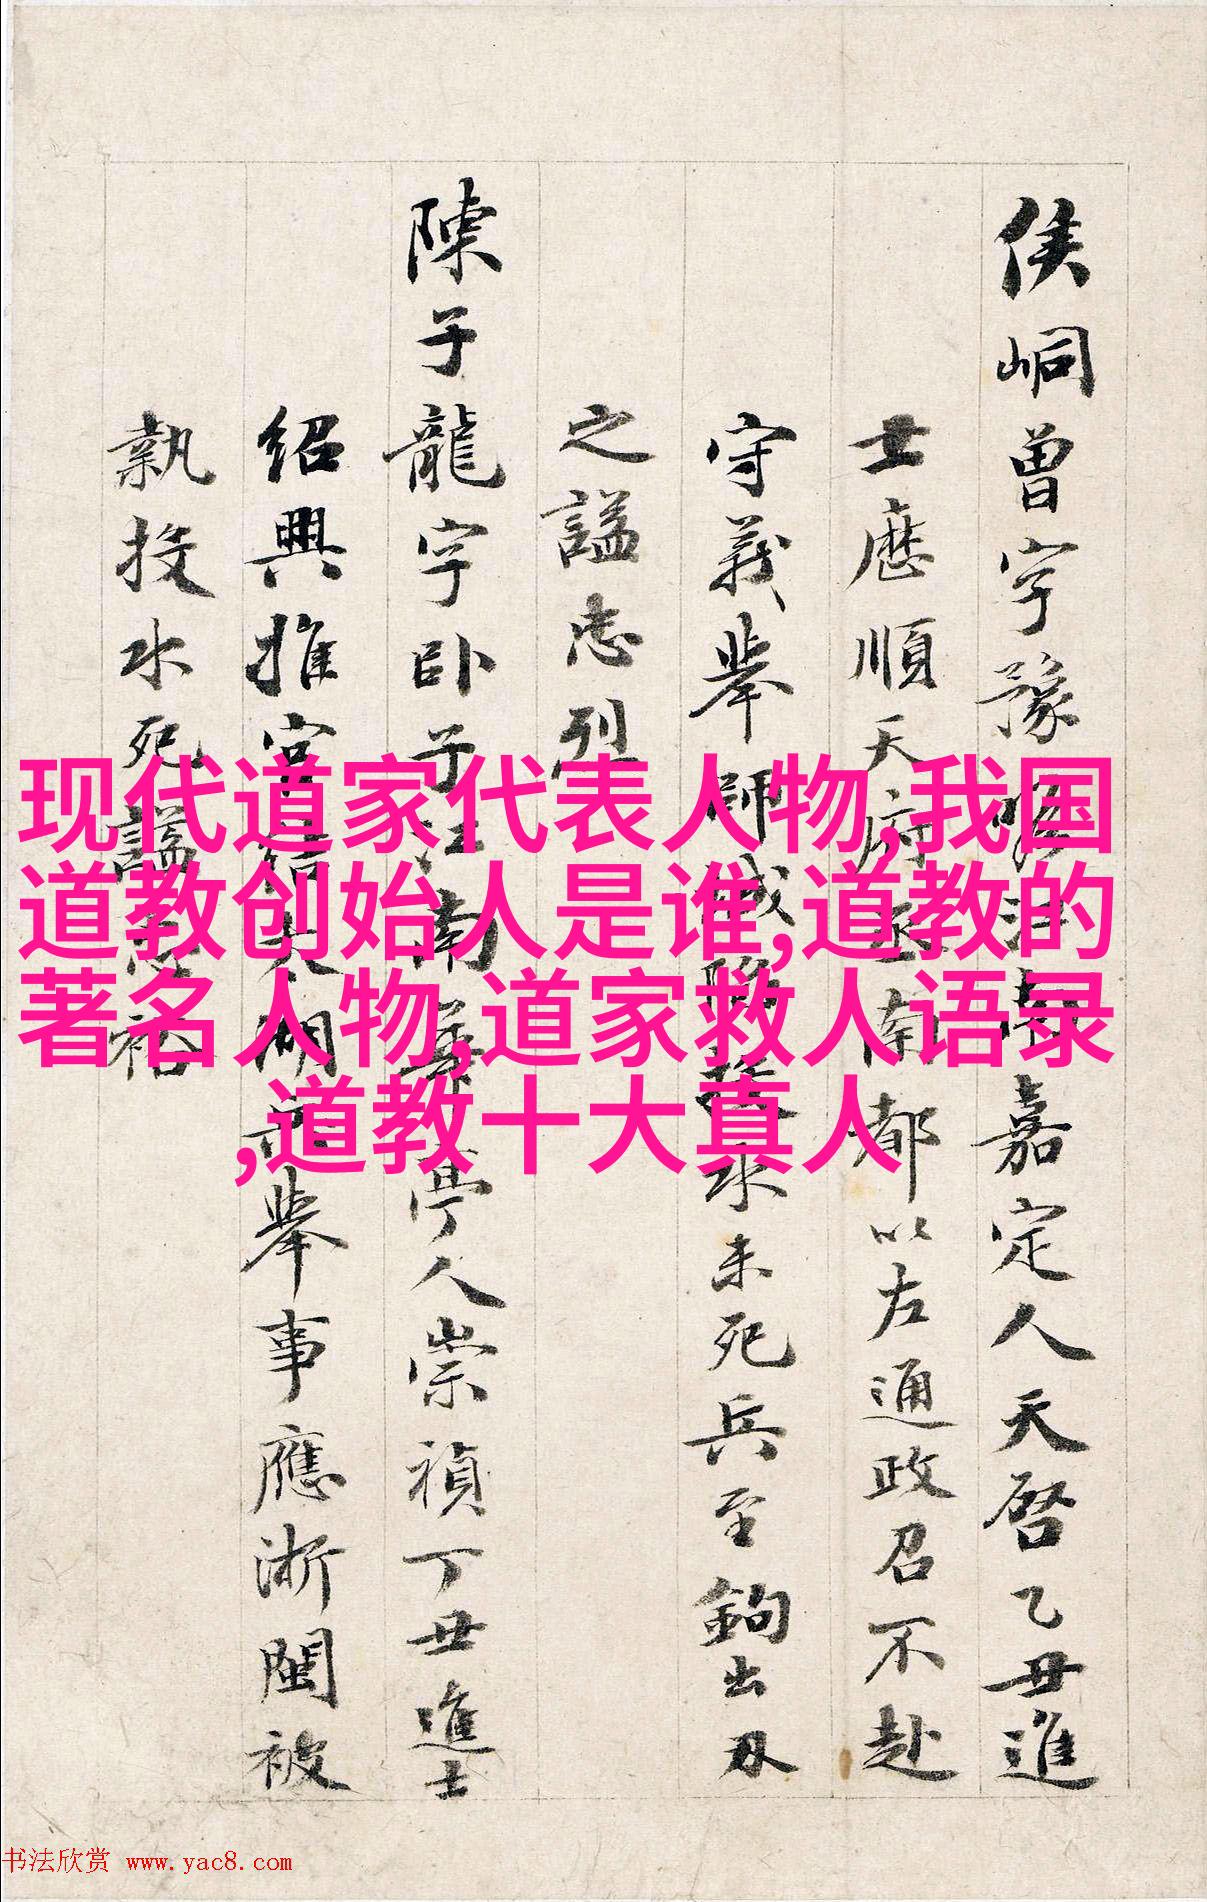 侯峒曾字豫瞻江南嘉定人天啓乙丑進
士歷順天府丞南都以左通政召不赴
守義舉師城陷投水未死兵至鉤出刃
之謚忠烈
陳子龍字卧子江南華亭人崇禎丁丑進士
紹興推官結太湖兵舉事應浙閩被
執投水死謚忠裕
现代道家代表人物,我国
道教创始人是谁,道教的
著名人物,道家救人语录
,道教十大真人
书法欣赏 www.yac8.com